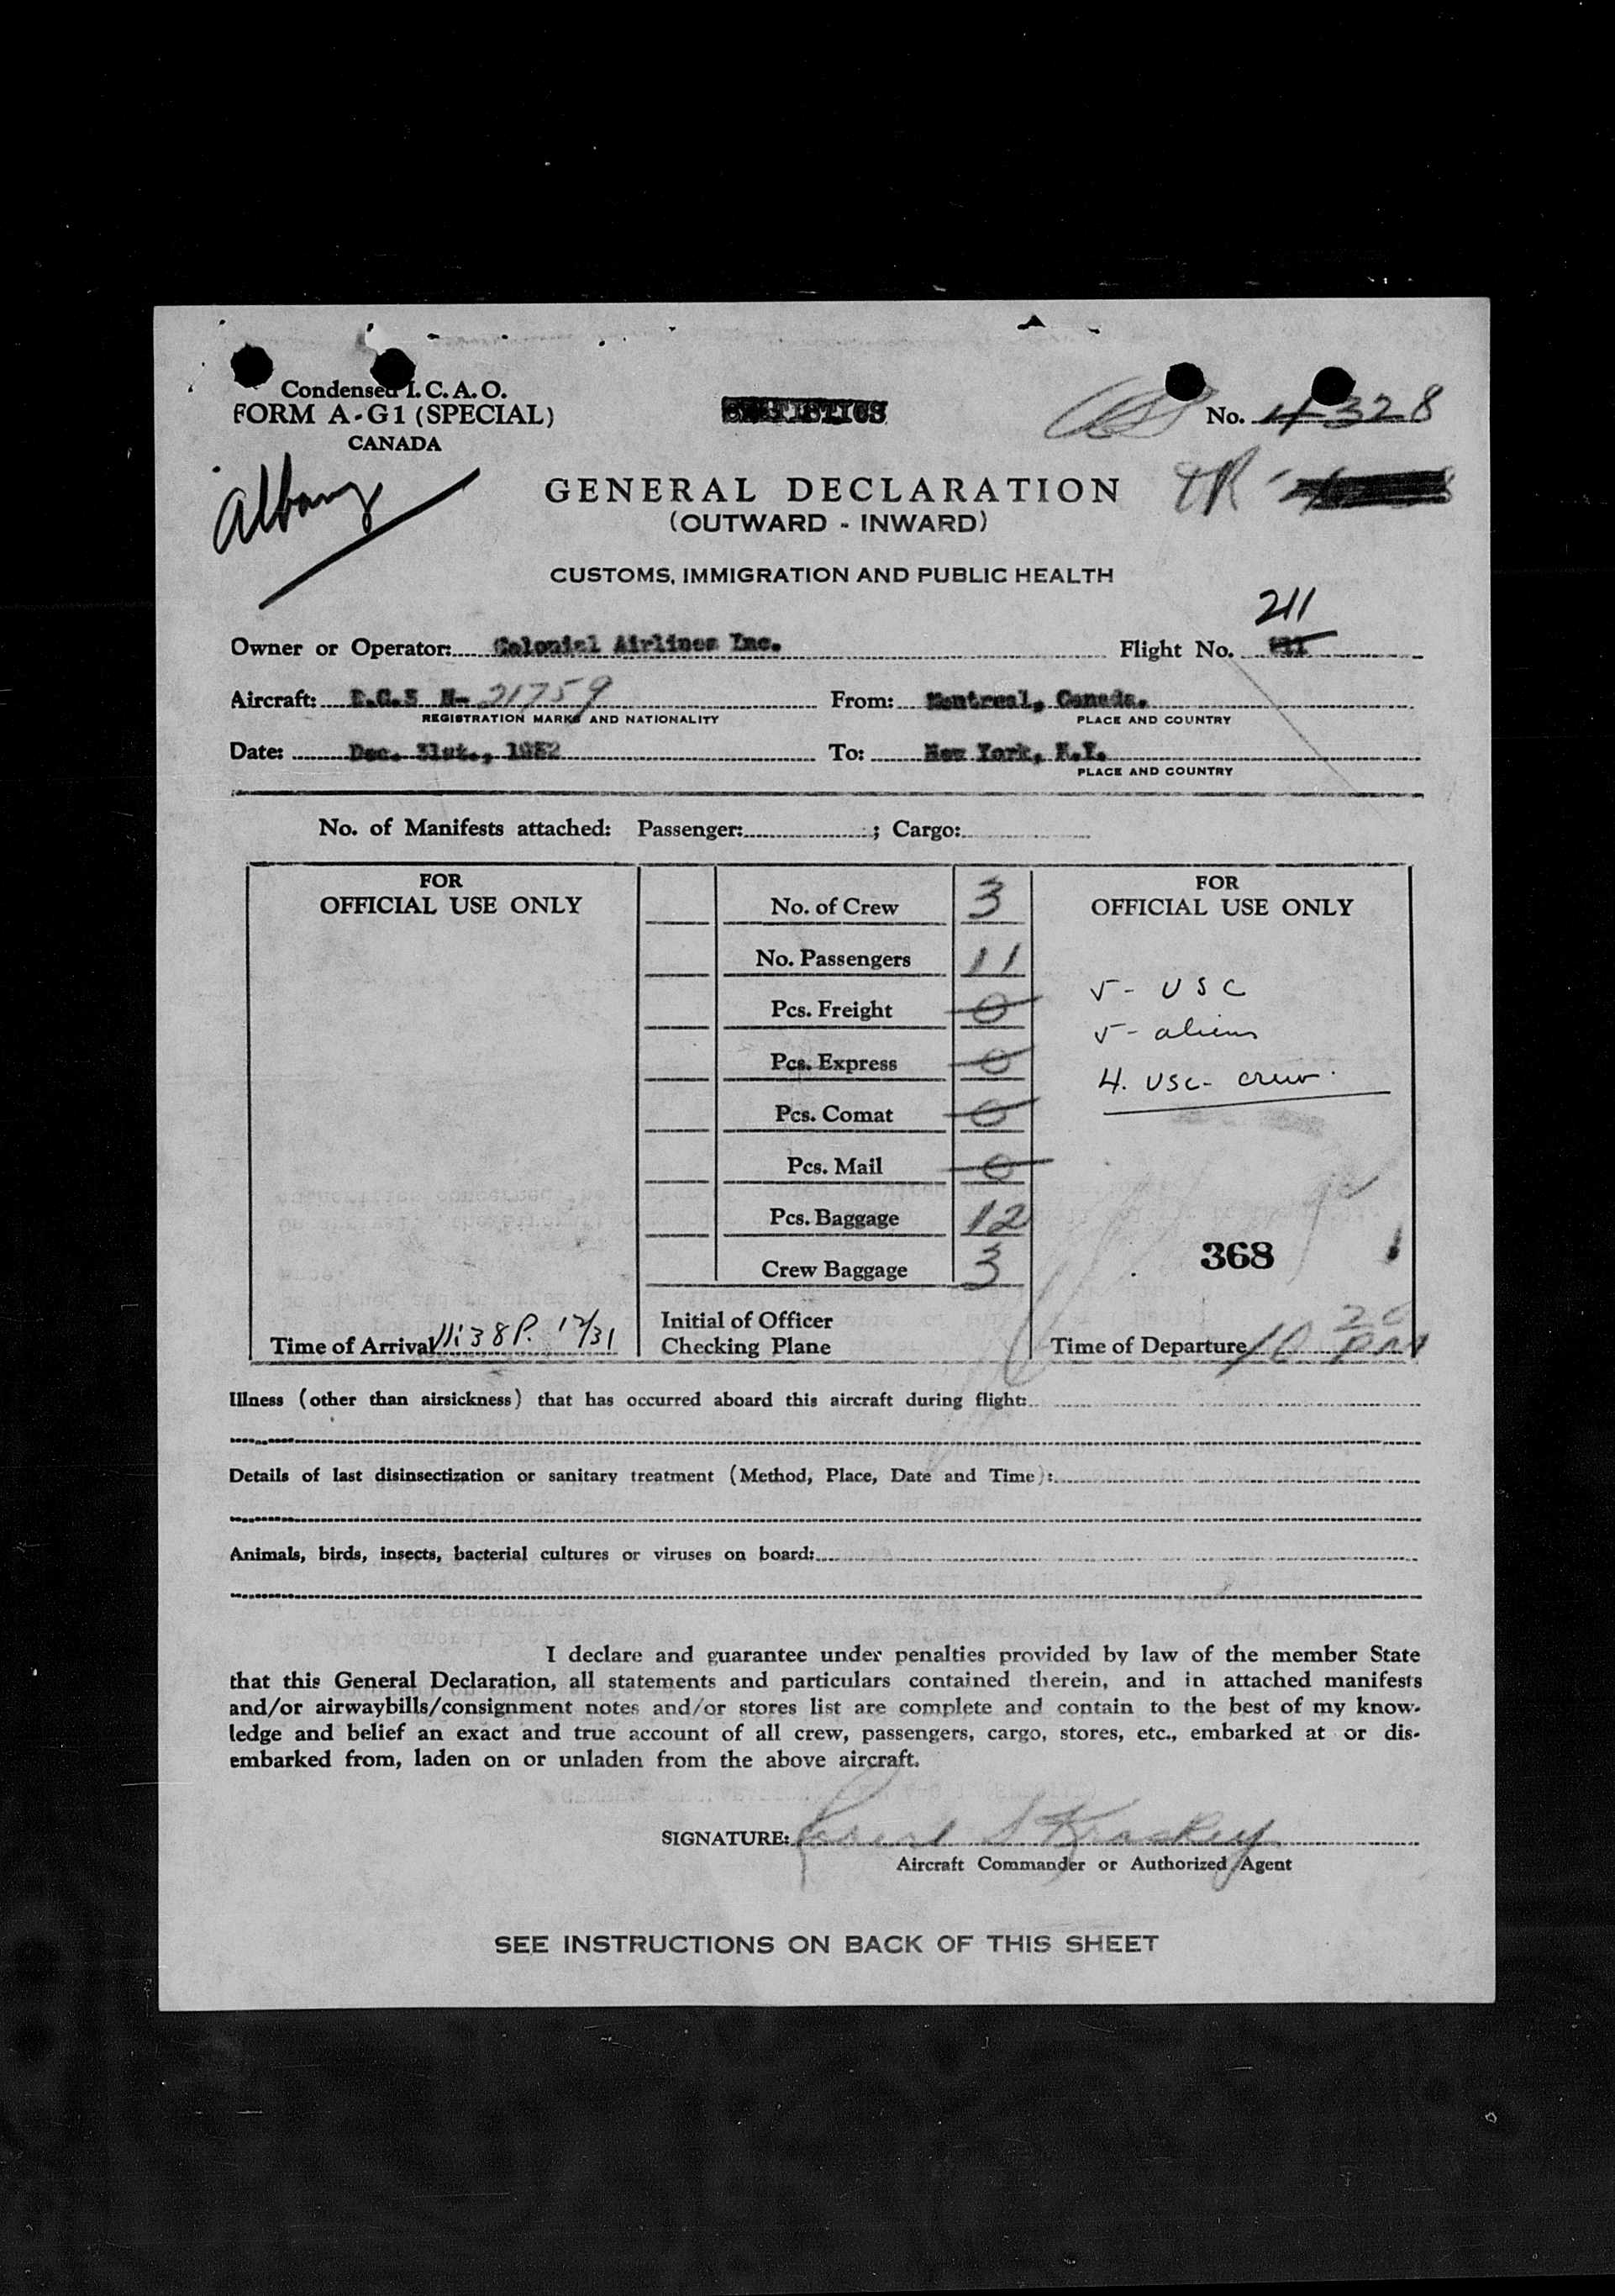 Condensed I. C. A. O.
FORM A-G1 (SPECIAL)
CANADA
STATISTICS
No. 4328
Albany
GENERAL DECLARATION
(OUTWARD - INWARD)
CUSTOMS, IMMIGRATION AND PUBLIC HEALTH
211
Owner or Operator: Colonial Airlines Inc. Flight No.
Aircraft: D.C.3 N- 21759 From: Montreal, Canada.
REGISTRATION MARKS AND NATIONALITY PLACE AND COUNTRY
Date: Dec. 31st., 1952 To: New York, N.Y.
PLACE AND COUNTRY
No. of Manifests attached: Passenger: ; Cargo:
FOR
OFFICIAL USE ONLY
No. of Crew 3
No. Passengers 11
Pcs. Freight 0
Pcs. Express 0
Pcs. Comat 0
Pcs. Mail 0
Pcs. Baggage 12
Crew Baggage 3
FOR
OFFICIAL USE ONLY
5- USC
5- aliens
4. USC- crew.
368
Time of Arrival 11:38 P. 12/31
Initial of Officer
Checking Plane
Time of Departure 10 20 PM
Illness (other than airsickness) that has occurred aboard this aircraft during flight:
Details of last disinsectization or sanitary treatment (Method, Place, Date and Time):
Animals, birds, insects, bacterial cultures or viruses on board:
I declare and guarantee under penalties provided by law of the member State
that this General Declaration, all statements and particulars contained therein, and in attached manifests
and/or airwaybills/consignment notes and/or stores list are complete and contain to the best of my know-
ledge and belief an exact and true account of all crew, passengers, cargo, stores, etc., embarked at or dis-
embarked from, laden on or unladen from the above aircraft.
SIGNATURE:
Aircraft Commander or Authorized Agent
SEE INSTRUCTIONS ON BACK OF THIS SHEET